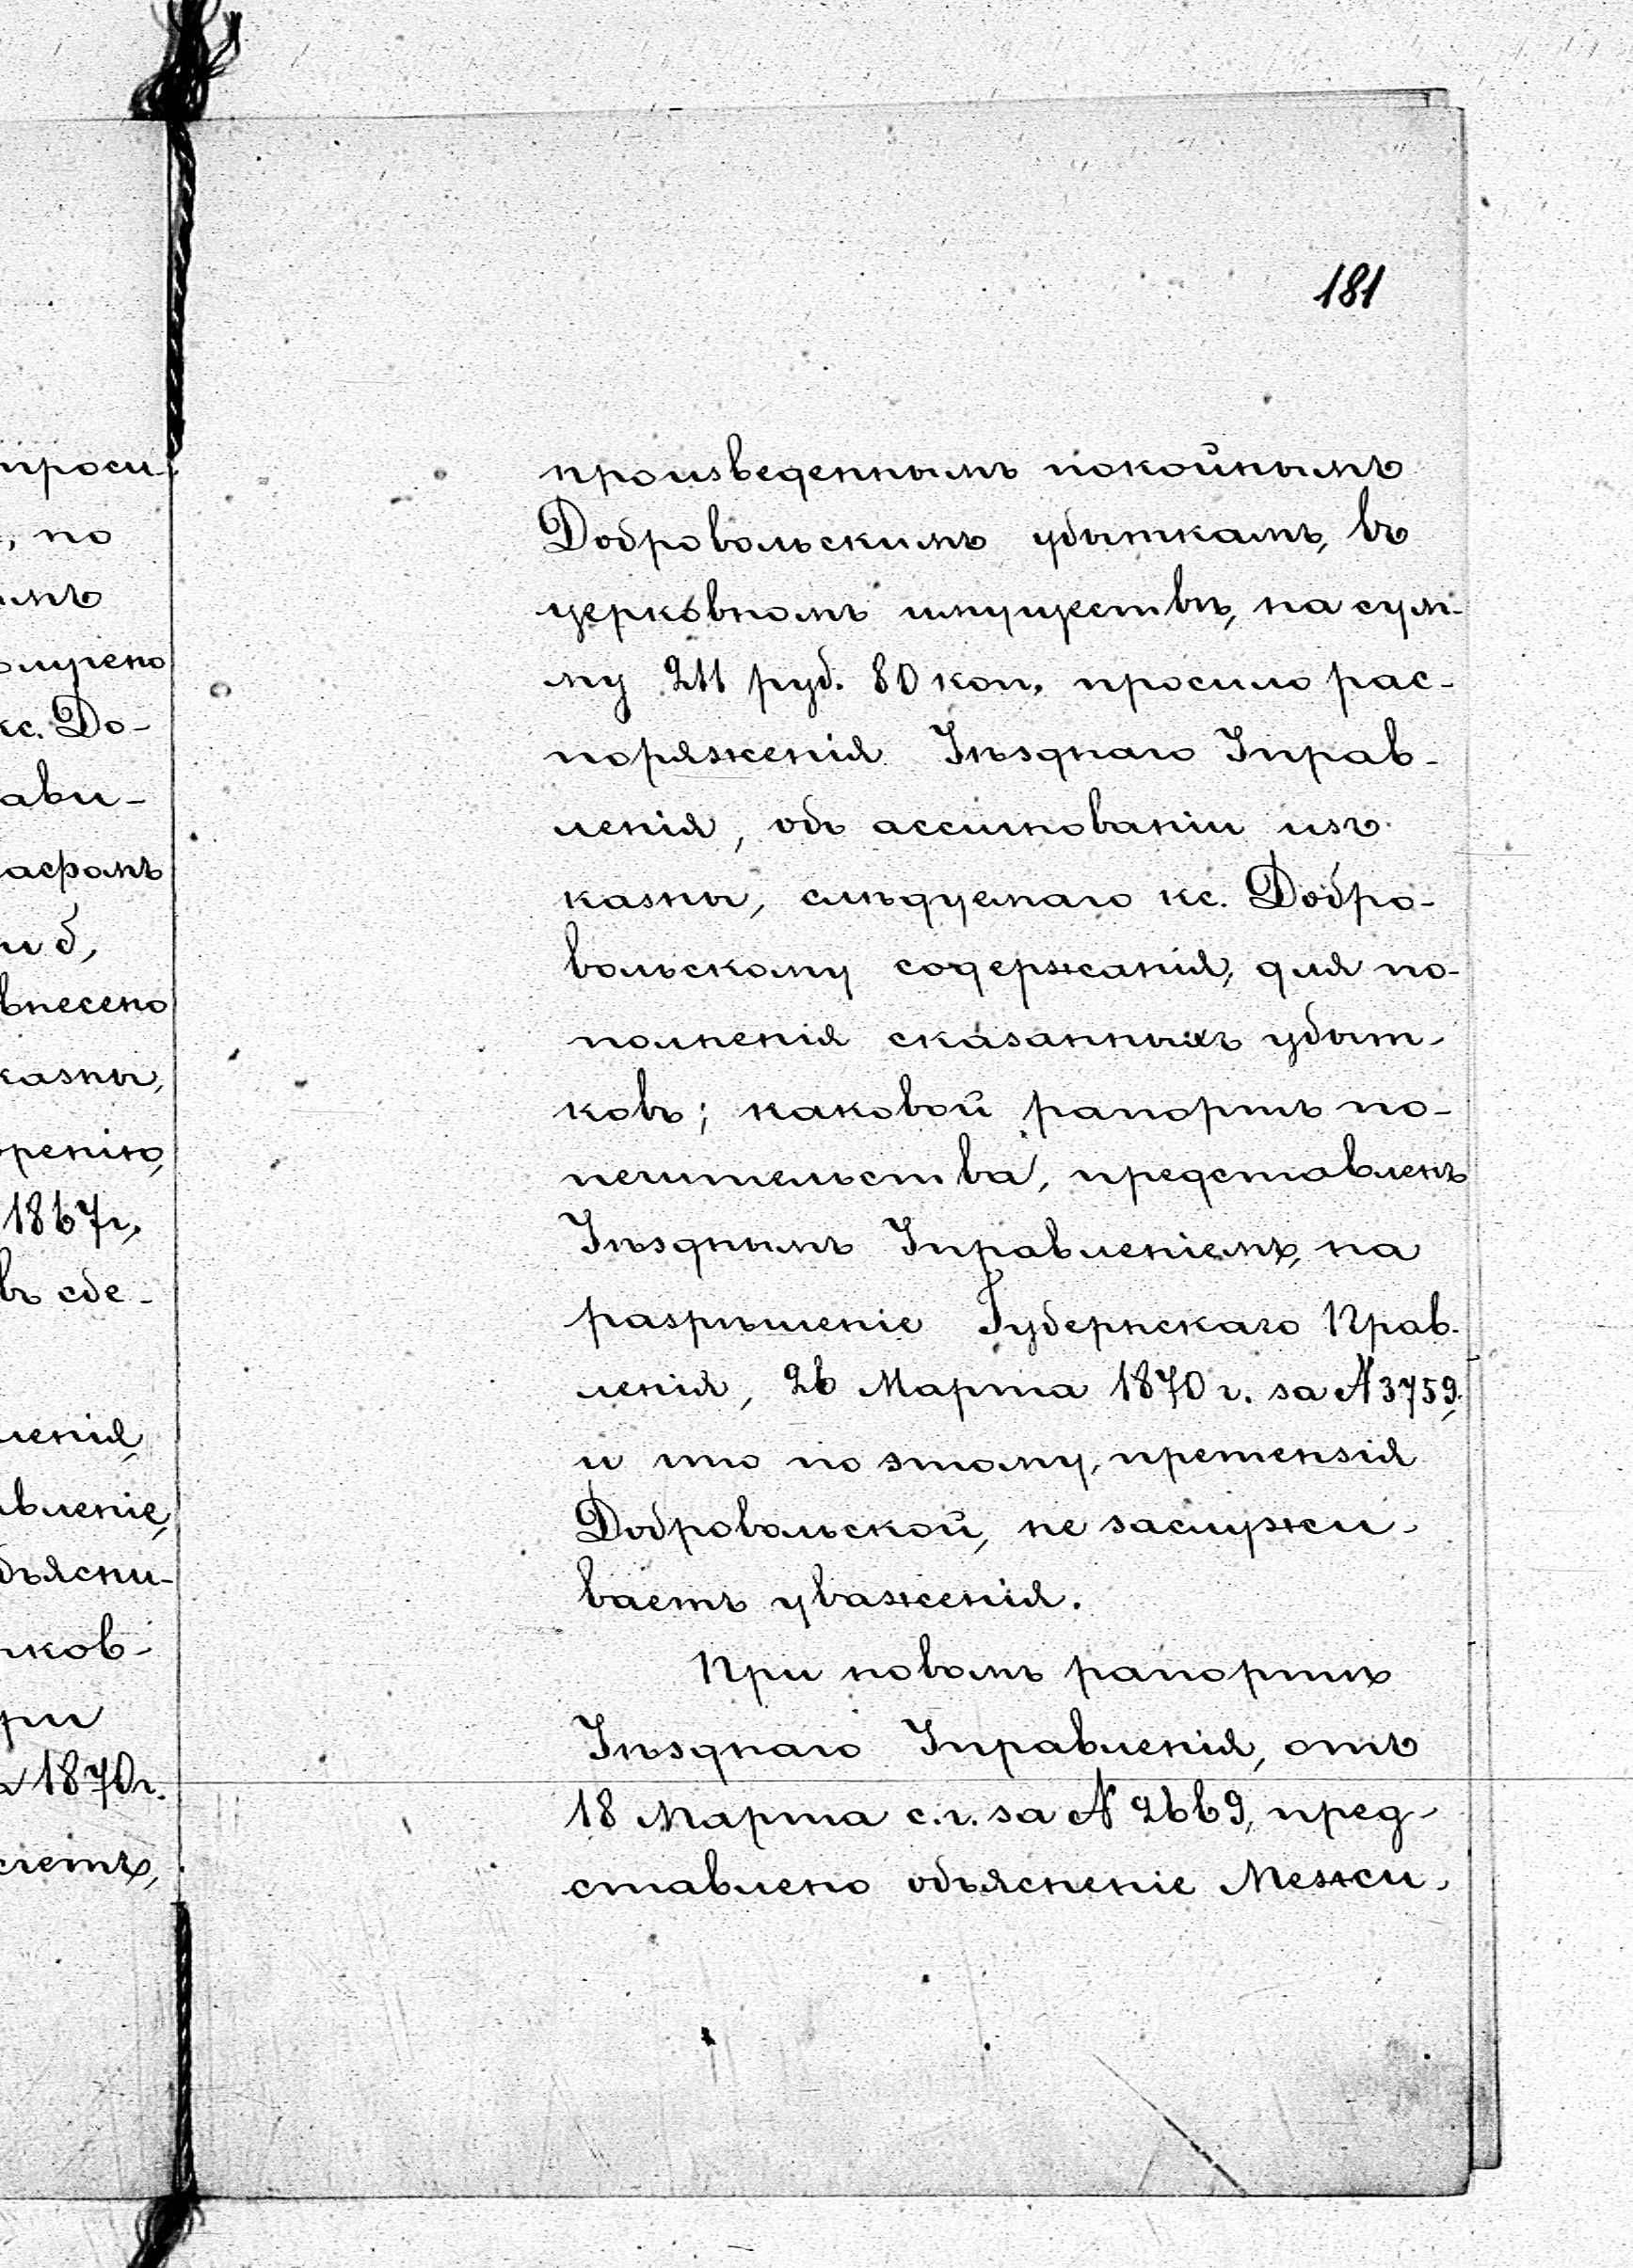 181
проси-
, по
имъ
олучено
кс. До-
ави-
асфомъ
и б,
внесено
казны,
ренію,
1867 г.,
въ сде-
ленія,
вленіе,
бъясни-
ков-
ри
а 1870 г.
счетѣ,
произведеннымъ покойнымъ
Добровольскимъ убыткамъ, въ
церковномъ имуществѣ, на сум-
му 211 руб. 80 коп. просило рас-
поряженія Уѣзднаго Управ-
ленія, объ ассигнованіи изъ
казны, слѣдуемаго кс. Добро-
вольскому содержанія, для по-
полненія сказанныхъ убыт-
ковъ; каковой рапортъ по-
печительства, представленъ
Уѣзднымъ Управленіемъ, на
разрѣшеніе Губернскаго Прав-
ленія, 26 Марта 1870 г. за № 3759.
и что по этому, претензія
Добровольской, не заслужи-
ваетъ уваженія.
При новомъ рапортѣ
Уѣзднаго Управленія, отъ
18 Марта с. г. за № 2669, пред-
ставлено объясненіе Межи-